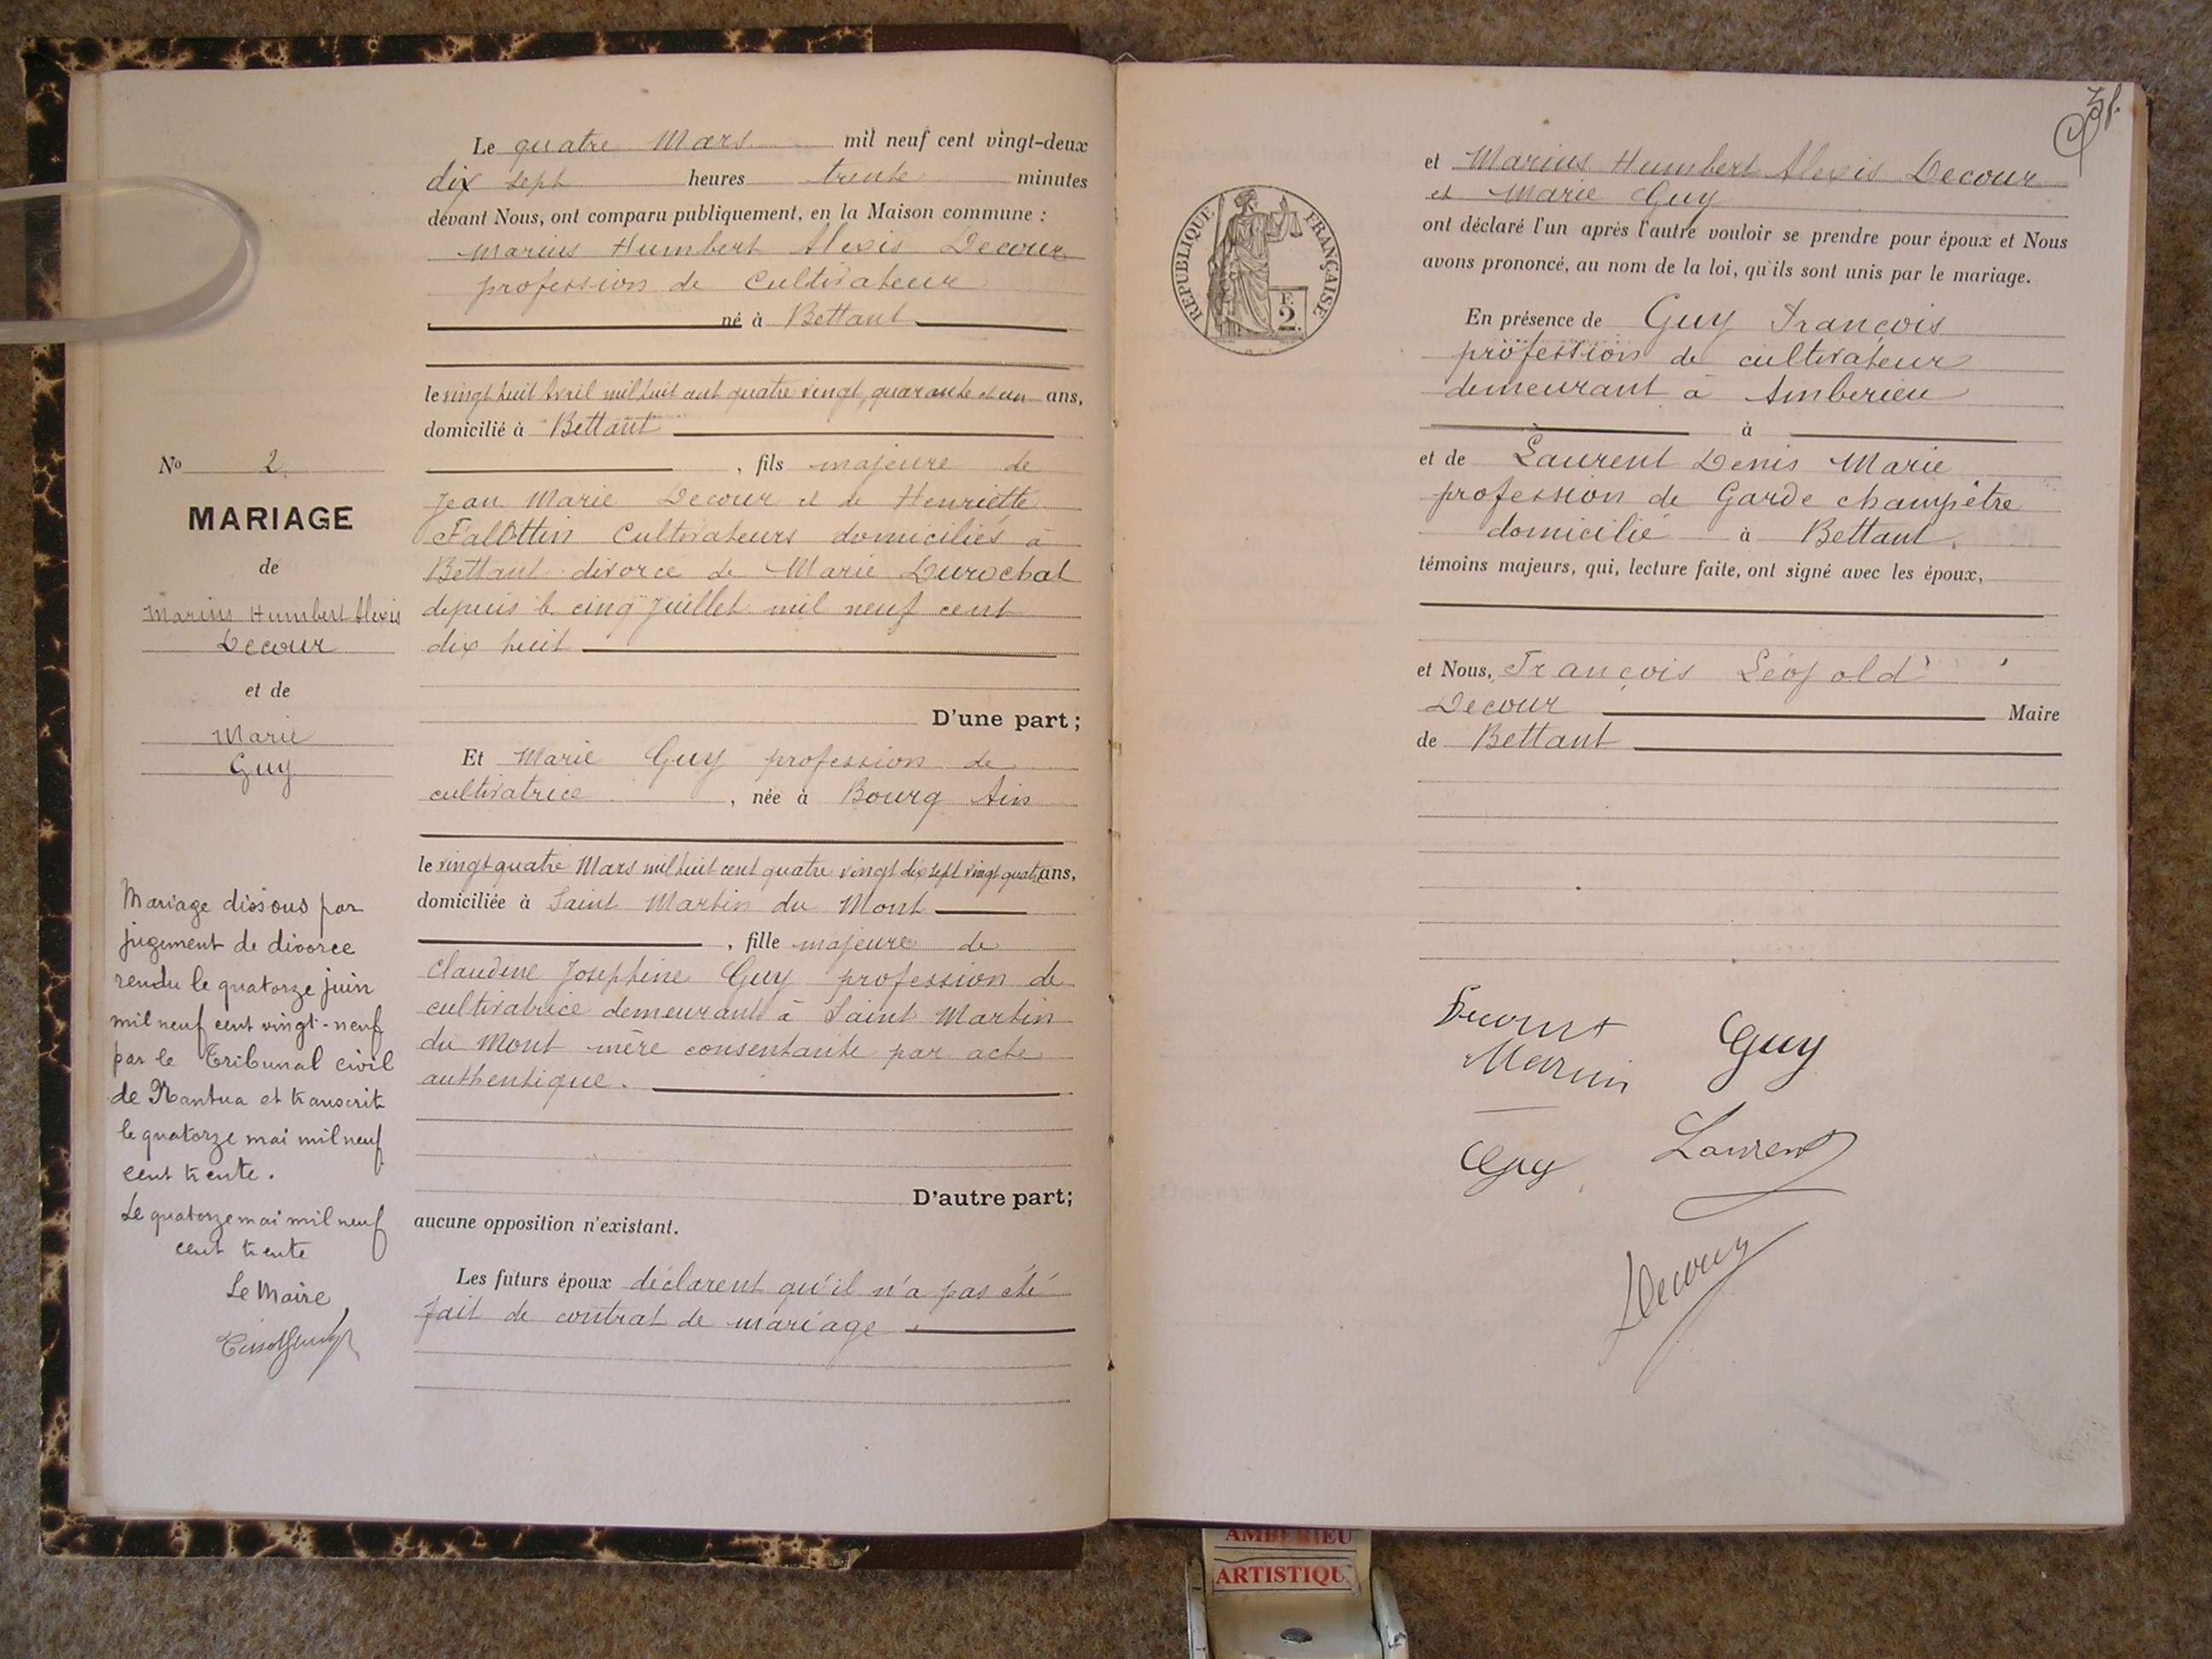 Le quatre Mars mil neuf cent vingt-deux
dix sept heures trente minutes
devant Nous, ont comparu publiquement, en la Maison commune :
Marius Humbert Alexis Decour
profession de Cultivateur
né à Bettant
le vingt huit Avril mil huit cent quatre vingt, quarante et un ans,
domicilié à Bettant
, fils majeure de
Jean Marie Decour et de Henriette
Falottin Cultivateurs domiciliés à
Bettant divorce de Marie Durochat
depuis le cinq Juillet mil neuf cent
dix huit
D'une part ;
Et Marie Guy profession de
cultivatrice , née à Bourg Ain
le vingt quatre Mars mil huit cent quatre vingt dix sept vingt quatre ans,
domiciliée à Saint Martin du Mont
, fille majeure de
Claudine Josephine Guy profession de
cultivatrice demeurant à Saint Martin
du Mont mère consentante par acte
authentique.
D'autre part;
aucune opposition n'existant.
Les futurs époux déclarent qu'il n'a pas été
fait de contrat de mariage.
No 2.
MARIAGE
de
Marius Humbert Alexis
Decour
et de
Marie
Guy
Mariage dissous par
jugement de divorce
rendu le quatorze juin
mil neuf cent vingt-neuf
par le Tribunal civil
de Nantua et transcrit
le quatorze mai mil neuf
cent trente.
Le quatorze mai mil neuf
cent trente
Le Maire,
REPUBLIQUE FRANÇAISE
F.
2.
et Marius Humbert Alexis Decour
et Marie Guy
ont déclaré l'un après l'autre vouloir se prendre pour époux et Nous
avons prononcé, au nom de la loi, qu'ils sont unis par le mariage.
En présence de Guy François
profession de cultivateur
demeurant à Amberieu
à
et de Laurent Denis Marie
profession de Garde champêtre
domicilié à Bettant.
témoins majeurs, qui, lecture faite, ont signé avec les époux,
et Nous, François Léopold
Decour Maire
de Bettant
Guy
Guy Laurent
Decour
ARTISTIQU